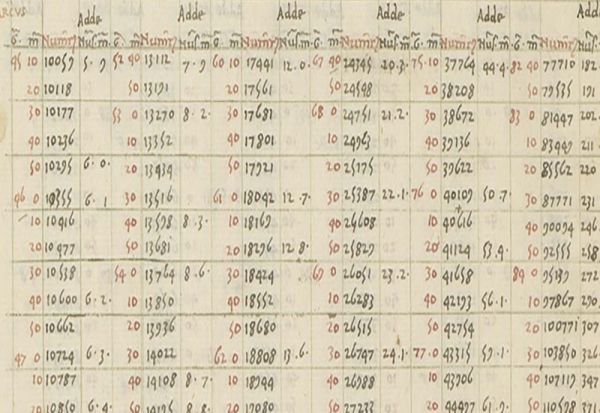 RCVS Adde Adde Adde Adde Adde Add
g̃ m̃ Numerꝯ Nus.m̃ g̃ m̃ Numerꝯ Nus.m̃ g̃ m̃ Numerꝯ Nus.m̃ g̃ m̃ Numerꝯ Nus.m̃ g̃ m̃ Numerꝯ Nus.m̃ g̃ m̃ Numerꝯ Nus.
45 10 10059 5.9 52 40 13112 7.9 60 10 17441 12.0. 67 40 24345 20.3. 75.10 37764 44.4. 82 40 77710 182
20 10118 50 13191 20 17561 50 24548 20 38208 50 79535 191
30 10177 53 0 13270 8.2. 30 17681 68 0 24751 21.2. 30 38672 83 0 81447 202
40 10236 10 13352 40 17801 10 24963 40 39136 10 83449 211
50 10295 6.0. 20 13434 50 17921 20 25175 50 39622 20 85562 220
46 0 10355 6.1 30 13516 61 0 18042 12.7. 30 25387 22.1. 76 0 40109 50.7. 30 87771 231
10 10416 40 13598 8.3. 10 18169 40 25608 10 40616 40 90094 246
20 10477 50 13681 20 18296 12.8. 50 25829 20 41124 53.4. 50 92555 258
30 10538 54 0 13764 8.6. 30 18424 69 0 26051 23.2. 30 41658 84 0 95139 272
40 10600 6.2. 10 13850 40 18552 10 26283 40 42193 56.1. 10 97867 290
50 10662 20 13936 50 18680 20 26515 50 42754 20 100771 307
47 0 10724 6.3. 30 14022 62 0 18808 13.6. 30 26747 24.1. 77.0 43315 59.1. 30 103850 326
10 10787 40 14108 8.7. 10 18944 40 26988 10 43906 40 107119 347
20 10850 6.4 50 14195 8.8. 20 19080 50 27233 20 44497 61.9. 50 110598 371